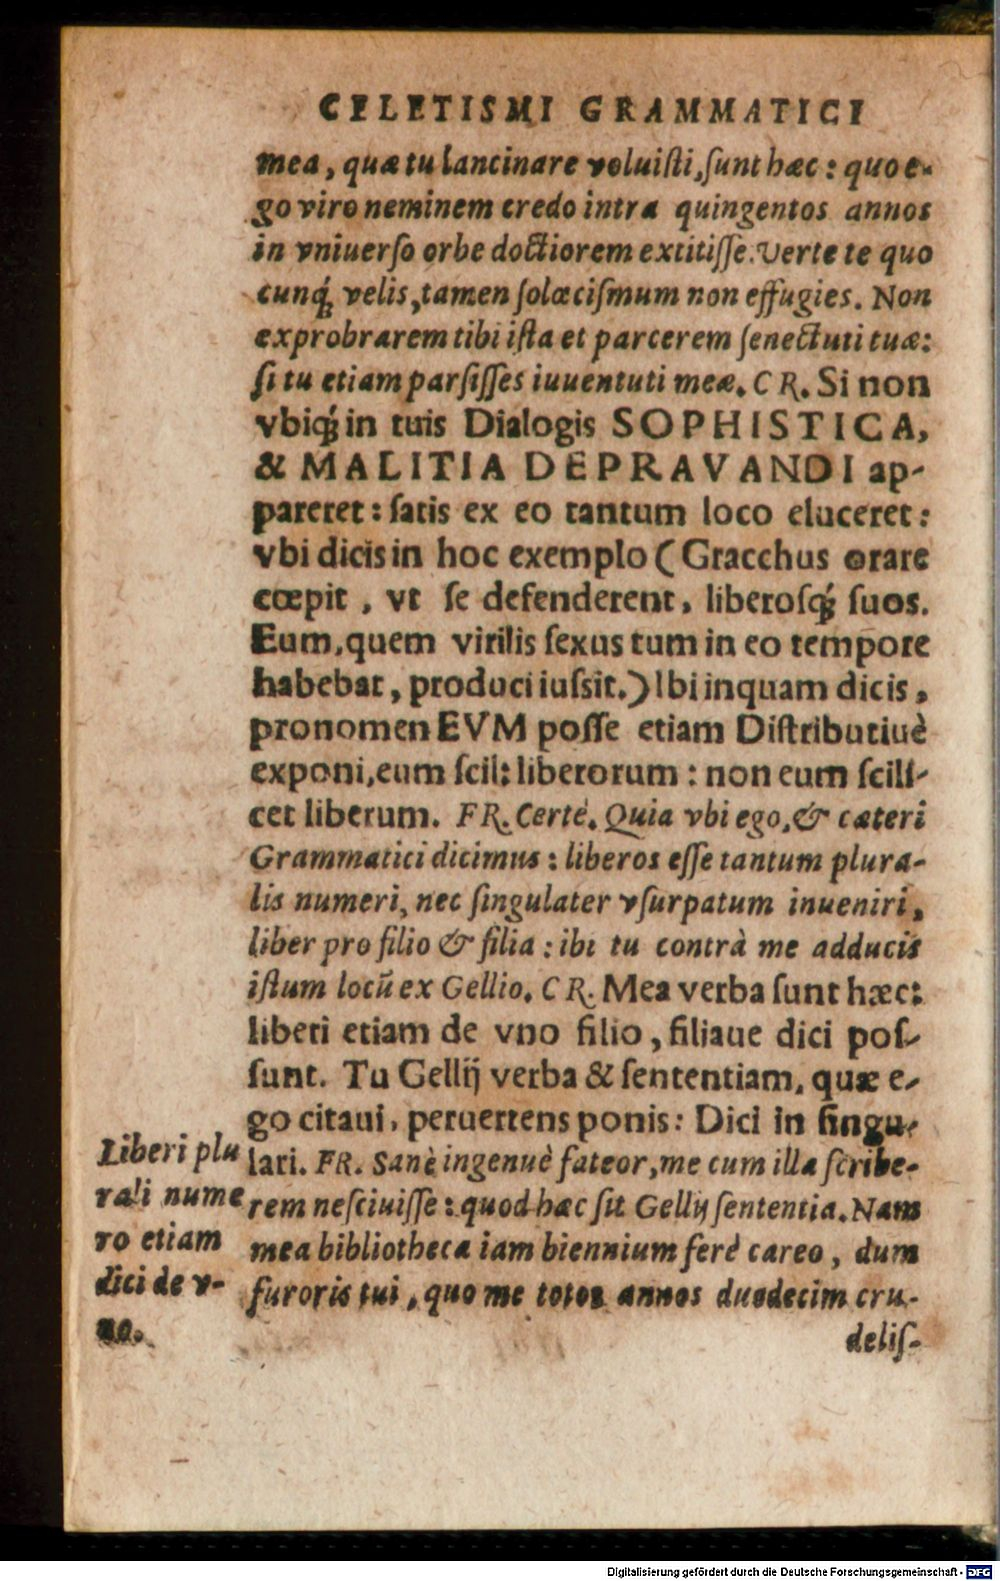 CELETISMI GRAMMATICI
mea, quæ tu lancinare voluiſti, ſunt hæc: quo e-
go viro neminem credo intra quingentos annos
in vniuerſo orbe doctiorem extitiſſe. Verte te quo
cunq́; velis, tamen ſolœciſmum non effugies. Non
exprobrarem tibi iſta et parcerem ſenectuti tuæ:
ſi tu etiam parſiſſes iuuentuti meæ. CR. Si non
vbiq́; in tuis Dialogis SOPHISTICA,
& MALITIA DEPRAVANDI ap-
pareret: ſatis ex eo tantum loco eluceret:
vbi dicis in hoc exemplo (Gracchus orare
cœpit, vt ſe defenderent, liberoſq́; ſuos.
Eum, quem virilis ſexus tum in eo tempore
habebat, produci iuſsit.) Ibi inquam dicis,
pronomen EVM poſſe etiam Diſtributiuè
exponi, eum ſcil: liberorum: non eum ſcili-
cet liberum. FR. Certè. Quia vbi ego, & cæteri
Grammatici dicimus: liberos eſſe tantum plura-
lis numeri, nec ſingulater vſurpatum inueniri,
liber pro filio & filia: ibi tu contrà me adducis
iſtum locũ ex Gellio. CR. Mea verba ſunt hæc:
liberi etiam de vno filio, filiaue dici poſ-
ſunt. Tu Gellij verba & ſententiam, quæ e-
go citaui, peruertens ponis: Dici in ſingu-
lari. FR. Sanè ingenuè fateor, me cum illa ſcribe-
rem neſciuiſſe: quod hæc ſit Gellij ſententia. Nam
mea bibliotheca iam biennium ferè careo, dum
furoris tui, quo me totos annos duodecim cru-
deliſ-
Liberi plu
rali nume
ro etiam
dici de v-
no.
Digitalisierung gefördert durch die Deutsche Forschungsgemeinschaft - DFG